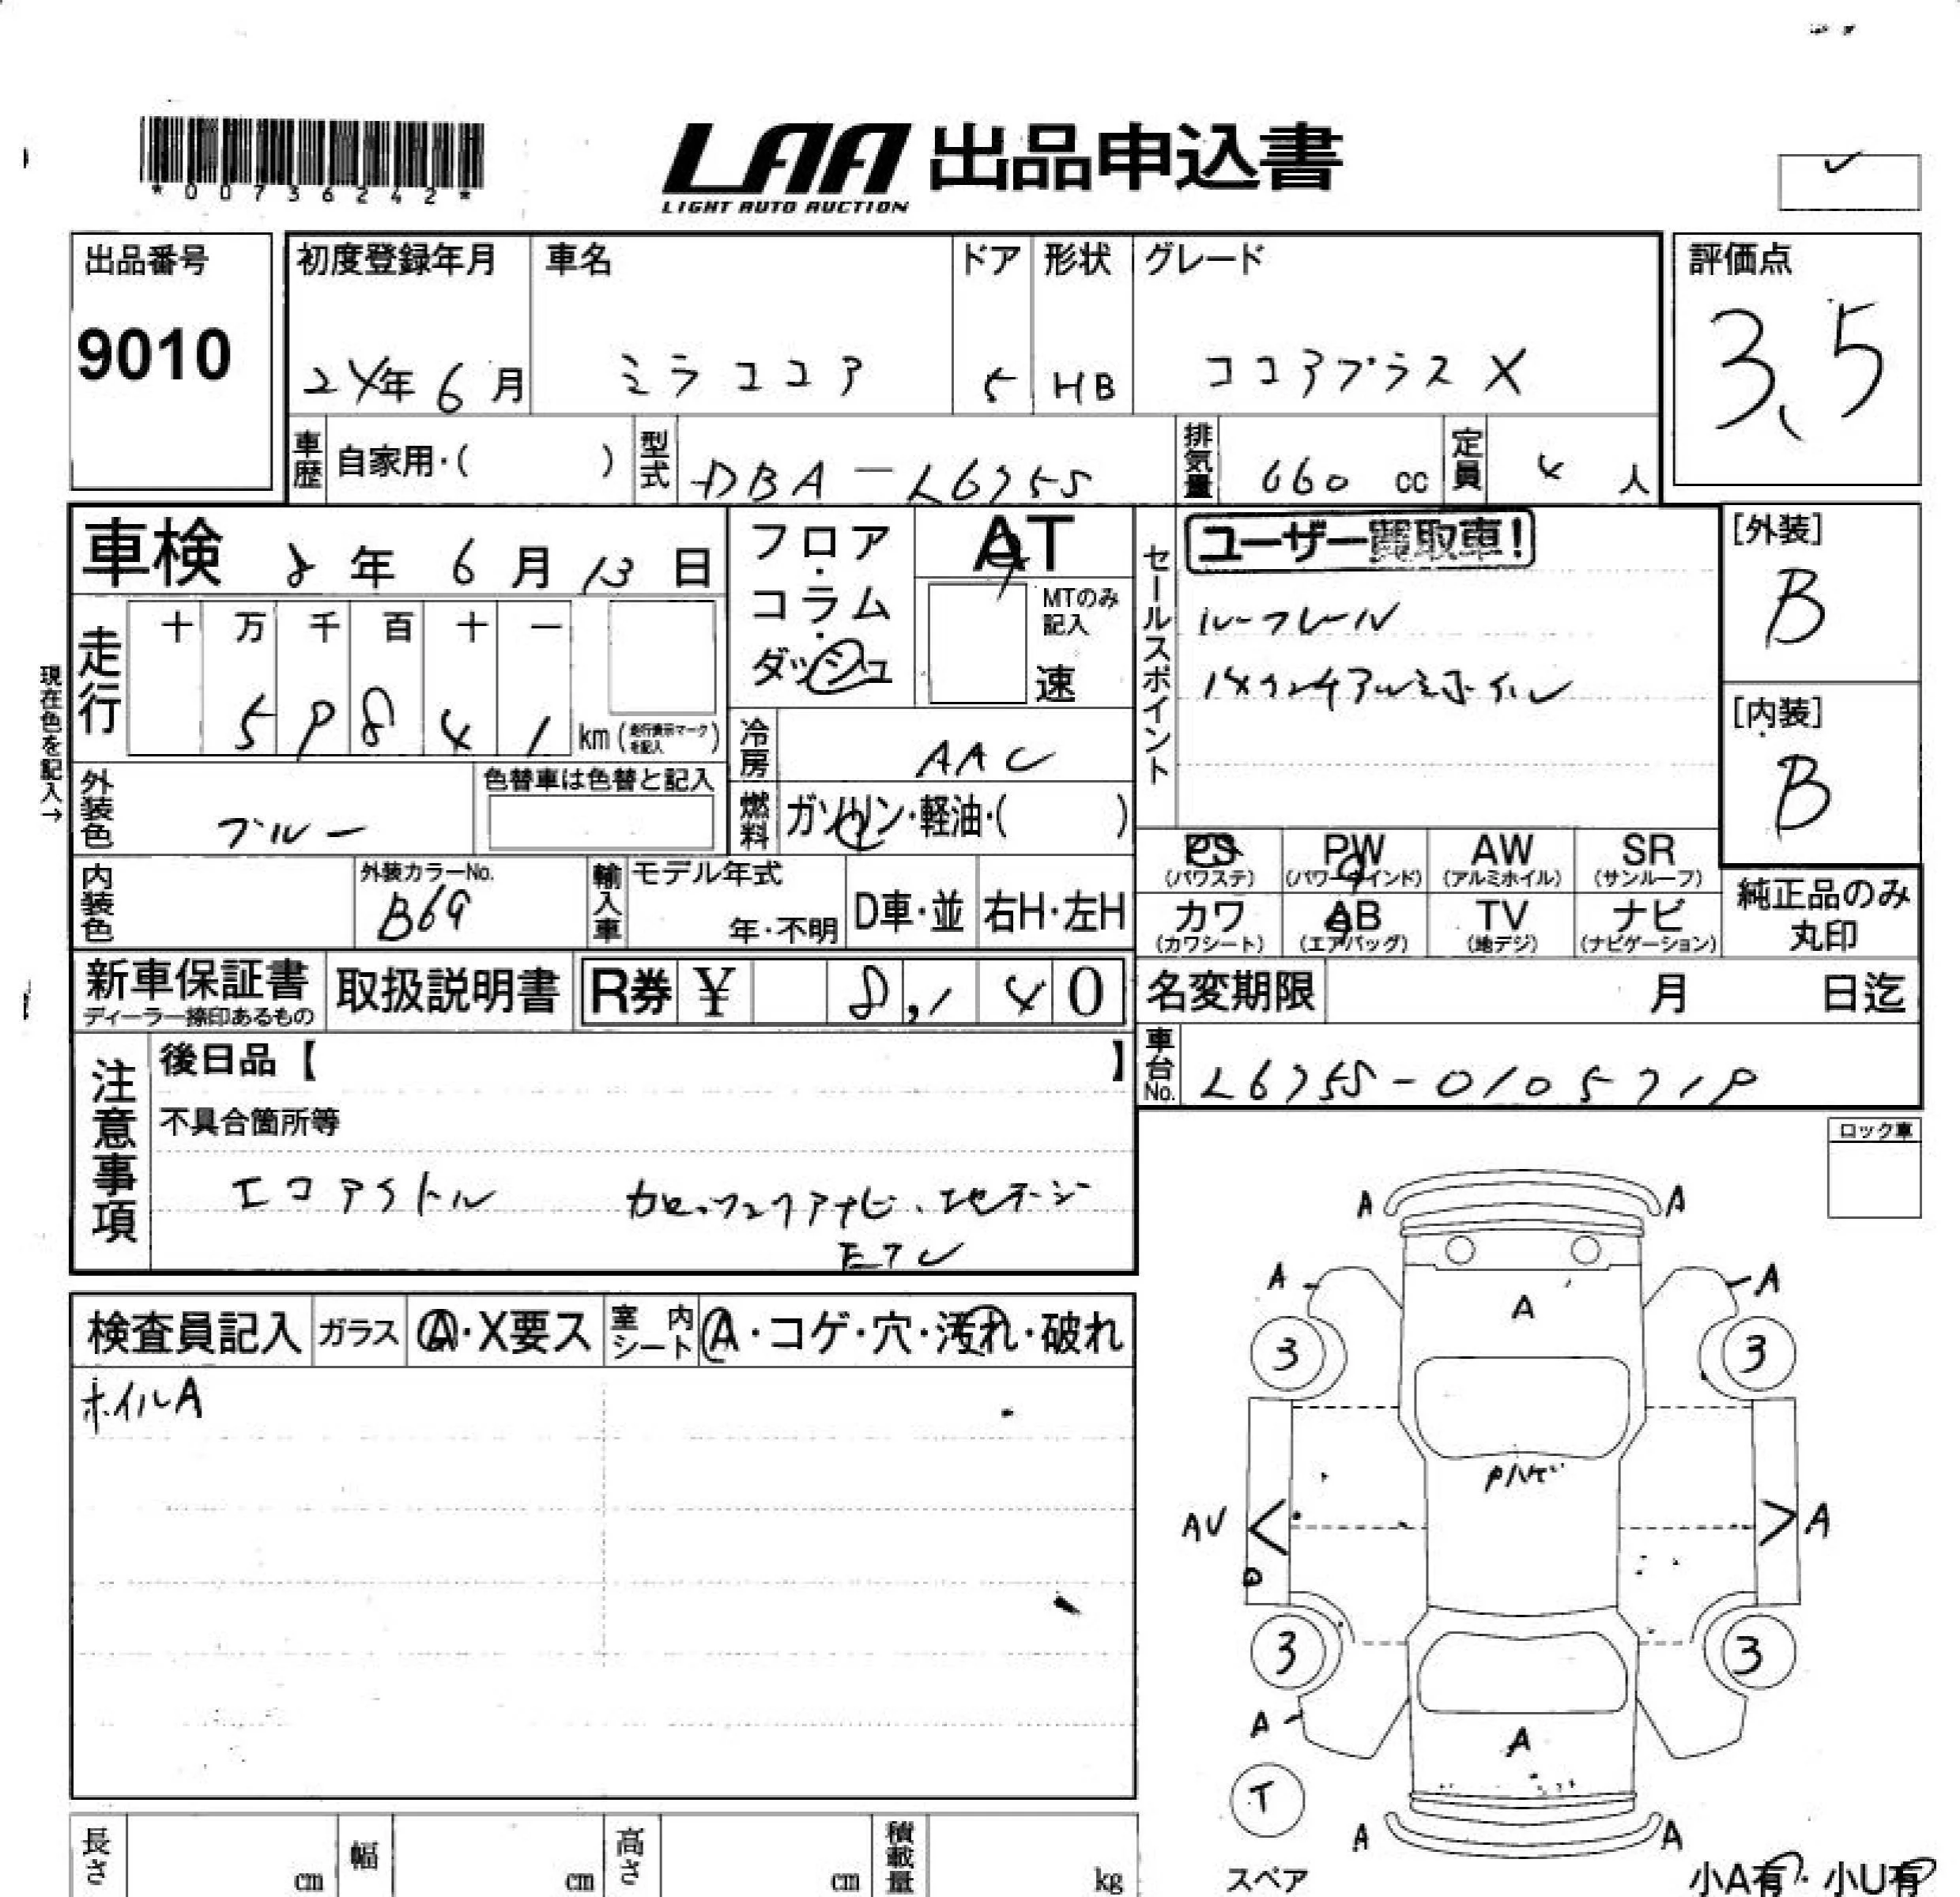 *00736242*
LAA 出品申込書
LIGHT AUTO AUCTION
出品番号
9010
初度登録年月
24年6月
車名
ミラココア
ドア
5
形状
HB
グレード
ココアプラスX
評価点
3.5
車歴
自家用・( )
型式
DBA-L675S
排気量
660 cc
定員
4人
車検 8年6月13日
フロア・コラム・ダッシュ
AT
MTのみ記入
速
セールスポイント
ユーザー買取車!
ルーフレール
14インチアルミホイル
[外装]
B
[内装]
B
現在色を記入→
走行
十 万 千 百 十 一
5 9 8 4 1 km (走行表示マークを記入)
冷房
AAC
外装色
ブルー
色替車は色替と記入
燃料
ガソリン・軽油・( )
PS PW AW SR
(パワステ) (パワーウインド) (アルミホイル) (サンルーフ)
カワ AB TV ナビ
(カワシート) (エアバッグ) (地デジ) (ナビゲーション)
純正品のみ
丸印
内装色
外装カラーNo.
B69
輸入車
モデル年式
年・不明
D車・並
右H・左H
新車保証書
ディーラー捺印あるもの
取扱説明書
R券 ¥ 8,140
名変期限 月 日迄
注意事項
後日品【 】
不具合箇所等
エコアイドル
ETC
車台No.
L675S-0105719
ロック車
検査員記入
ガラス
A・X要ス
室内シート
A・コゲ・穴・汚れ・破れ
ホイルA
A A
A A
A
3 3
AV A
3 3
A
A
T
スペア
A A
小A有・小U有
長さ cm
幅 cm
高さ cm
積載量 kg